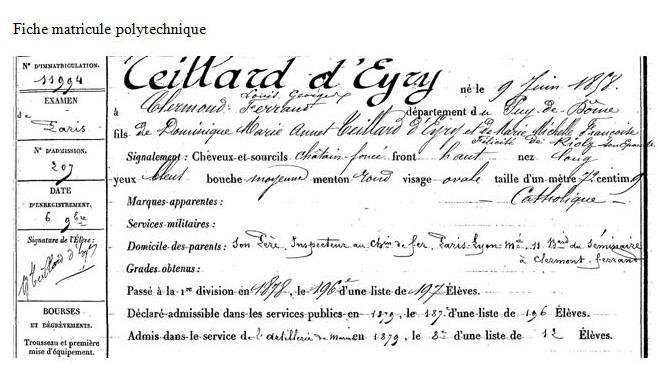 Fiche matricule polytechnique
N° D'IMMATRICULATION.
11994
EXAMEN
de
Paris
N° D'ADMISSION.
207
DATE
D'ENREGISTREMENT,
6 9bre
Signature de l'Élève:
Teillard d'Eyry
BOURSES
ET DÉGRÈVEMENTS.
Trousseau et première
mise d'équipement.
Teillard d'Eyry né le 9 Juin 1858.
Louis Georges
à Clermond-Ferrand département du Puy-de-Dôme
fils de Dominique Marie Annet Teillard d'Eyry et de Marie Michelle Françoise
Félicité de Riolz
Signalement: Cheveux et sourcils châtain foncé front haut nez long
yeux bleus bouche moyenne menton rond visage ovale taille d'un mètre 72 centim 9
Marques apparentes: — Catholique —
Services militaires:
Domicile des parents: Son Père, Inspecteur au Chin de fer, Paris-Lyon-Mée 11 Bard du Séminaire
à Clermont-ferrant
Grades obtenus:
Passé à la 1re division en 1878, le 196e d'une liste de 197 Élèves.
Déclaré admissible dans les services publics en 1879, le 187e d'une liste de 196 Élèves.
Admis dans le service de l'artillerie de marine en 1879, le 8e d'une liste de 12 Élèves.